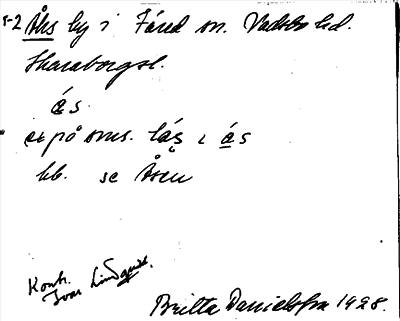 1-2 Åhs by i Färed sn. Vadsbo hd.
Skaraborgsl.
ás.
på sms. lás i ás
bb. se Åsen
Kontr.
Ivar Lindquist.
Britta Danielsson 1928.